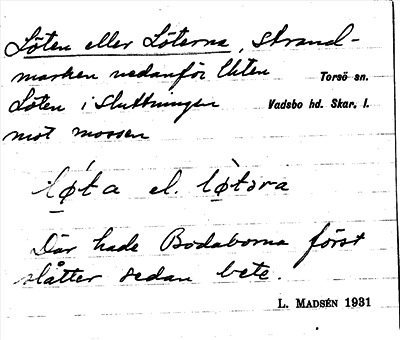 Löten eller Löterna, strand-
marken nedanför Uten Torsö sn.
Löten i sluttningen Vadsbo hd. Skar. l.
mot mossen
løta el. løtəra
Där hade Bodaborna först
slåtter sedan bete.
L. MADSÉN 1931